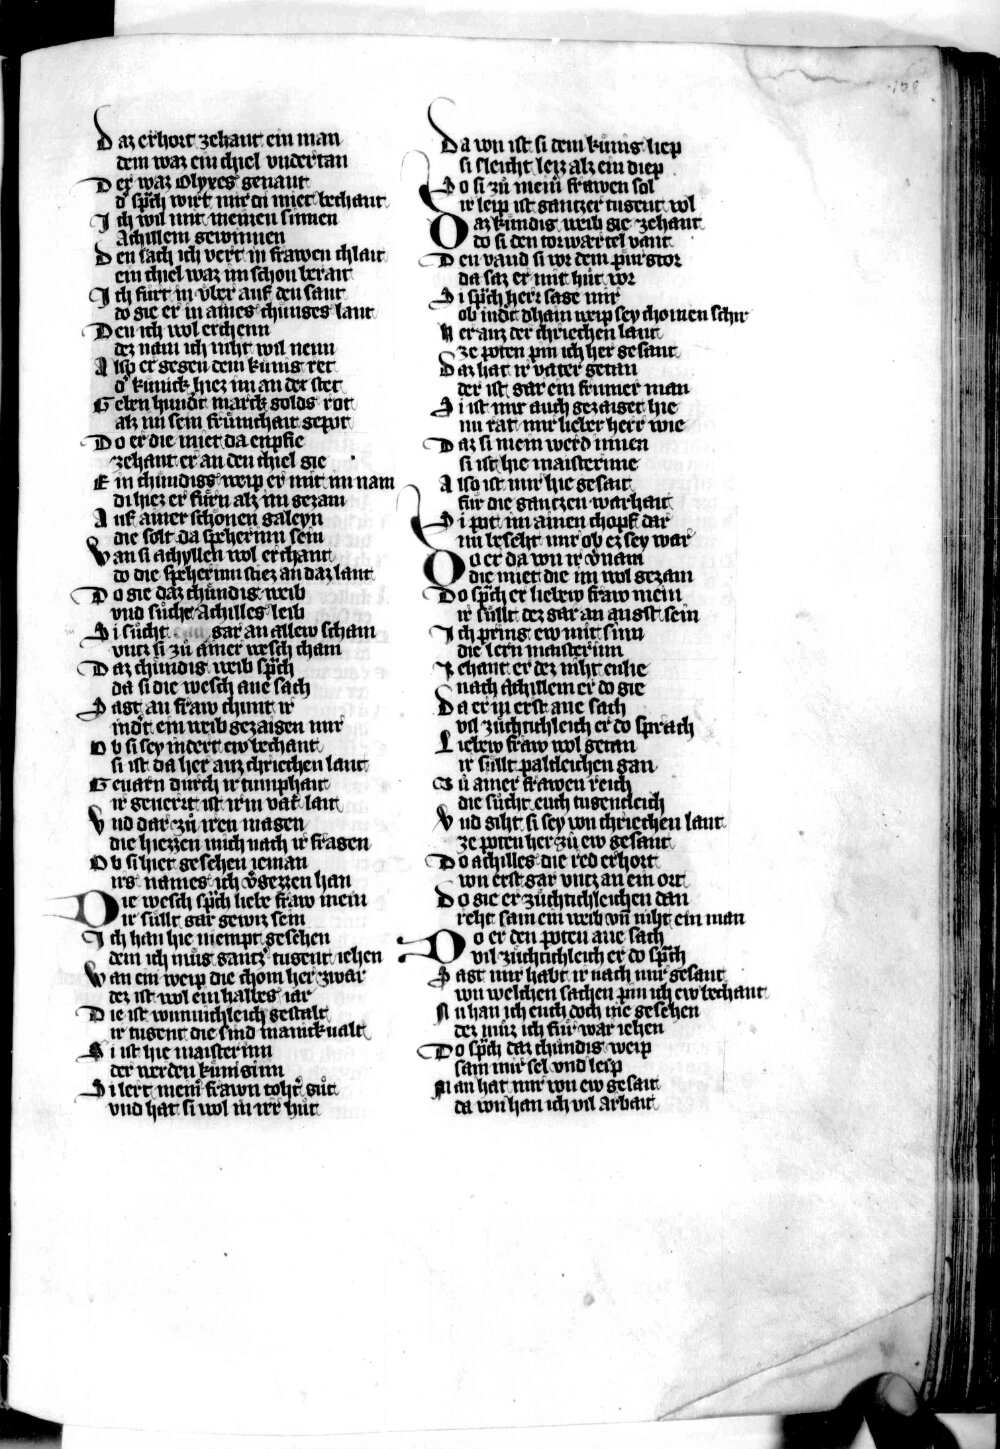 Daz erhort zehant ein man
dem waz ein chiel vndertan
Der waz Vlyxes genant
d' sp̄ch wirt mir di miet bechant
Ich wil mit meinen sinnen
Achillem gewinnen
Den sach ich vert in frawen chlait
ein chiel waz im schon berait
Ich fürt in vber auf den sant
do gie er in aines chüniges lant
Den ich wol erchenn
dez nam ich niht wil nenn
Also er gegen dem künig ret
d' künick hiez im an der stet
Geben hundt marck golds rot
alz im sein frümchait gepot
Do er die miet da enpfie
zehant er an den chiel gie
Ein chündigs weip er mit im nam
di hiez er fürn alz im gezam
Auf ainer schönen galeyn
die solt da speherinn sein
Wan si achyllen wol erchant
do die speherinn stiez an daz lant
Do gie daz chündig weib
vnd süche Achilles leib
Si sücht gar an allew scham
vntz si zů ainer wesch cham
Daz chündig weib sp̄ch
da si die wesch ane sach
Sagt an fraw chunt ir
indt ein weib gezaigen mir
Ob si sey indert ew bechant
si ist da her auz chriechen lant
Geuarn durch ir tumphait
ir geuerrt ist irm vat' lait
Vnd dar zů iren magen
die hiezzen mich nach ir fragen
Ob si hiet gesehen ieman
irs names ich v'gezzen han
Die wesch sp̄ch liebe fraw mein
ir süllt gar gewiz sein
Ich han hie niempt gesehen
dem ich müg gantz' tugent iehen
Wan ein weip die chom her zwar
dez ist wol ein halbes iar
Die ist wunnichleich gestalt
ir tugent die sind manickualt
Si ist hie maisterinn
der werden küniginn
Si lert meinr frawn toht' gůt
vnd hat si wol in irr hůt
Da von ist si dem künig liep
si sleicht leiz alz ein diep
So si zů meinr frawen sol
ir leip ist gantzer tugent vol
Daz kündig weib gie zehant
do si den torwärtel vant
Den vand si vor dem purgtor
da saz er mit hůt vor
Si sp̄ch herr sage mir
ob indt dhain weip sey chomen schir
Her auz der chriechen lant
ze poten pin ich her gesant
Daz hat ir vater getan
der ist gar ein frumer man
Si ist mir auch gezaiget hie
nu rat mir lieber herr wie
Daz si mein werd innen
si ist hie maisterinne
Also ist mir hie gesait
für die gantzen warhait
Si pot im ainen chopf dar
nu beseht mir ob ez sey war
Do er da von ir v'nam
die miet die im wol gezam
Do sp̄ch er liebew fraw mein
ir süllt dez gar an angst sein
Ich pring ew mit sinn
die lern maisterinn
Zehant er dez niht enlie
nach Achillem er do gie
Da er in erst ane sach
vil züchtichleich er do sprach
Liebew fraw wol getan
ir süllt paldleichen gan
Zů ainer frawen reich
die sücht euch tugentleich
Vnd giht si sey von chriechen lant
ze poten her zů ew gesant
Do achilles die red erhort
von erst gar vntz an ein ort
Do gie er züchtichleichen dan
reht sam ein weib vn̄ niht ein man
Do er den poten ane sach
vil züchtichleich er do sp̄ch
Sagt mir habt ir nach mir gesant
von welchen sachen pin ich ew bechant
Nu han ich euch doch nie gesehen
dez můz ich für war iehen
Do sp̄ch daz chündig weip
sam mir sel vnd leip
Man hat mir von ew gesait
da von han ich vil arbait